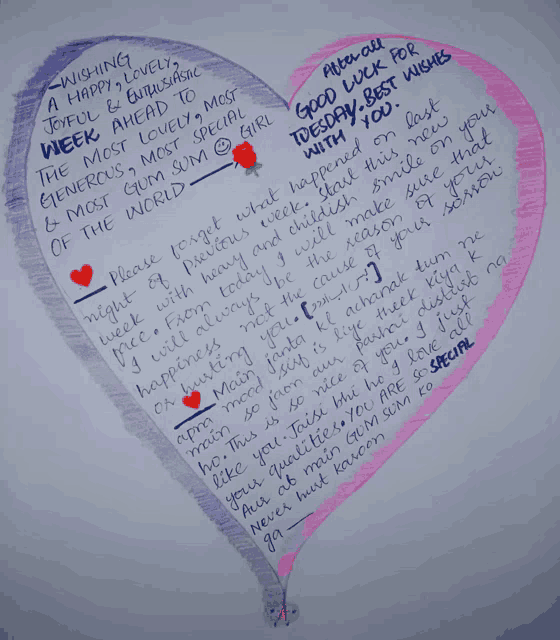 —WISHING
A HAPPY, LOVELY,
JOYFUL & ENTHUSIASTIC
WEEK AHEAD TO
THE MOST LOVELY, MOST
GENEROUS, MOST SPECIAL
& MOST GUM SUM GIRL
OF THE WORLD —
After all
GOOD LUCK FOR
TUESDAY. BEST WISHES
WITH YOU.
— Please forget what happened on last
night of previous week. Start this new
week with heavy and childish smile on your
face. From today I will make sure that
I will always be the reason of your
happiness not the cause of your sorrow
or hurting you.
— Main janta kl achanak tum ne
apna mood self is liye theek kiya k
main so jaon aur Parhai disturb na
ho. This is so nice of you. I just
like you. Jaise bhi ho I love all
your qualities. YOU ARE SO SPECIAL
Aur ab main GUM SUM KO
Never hurt karoon
ga —